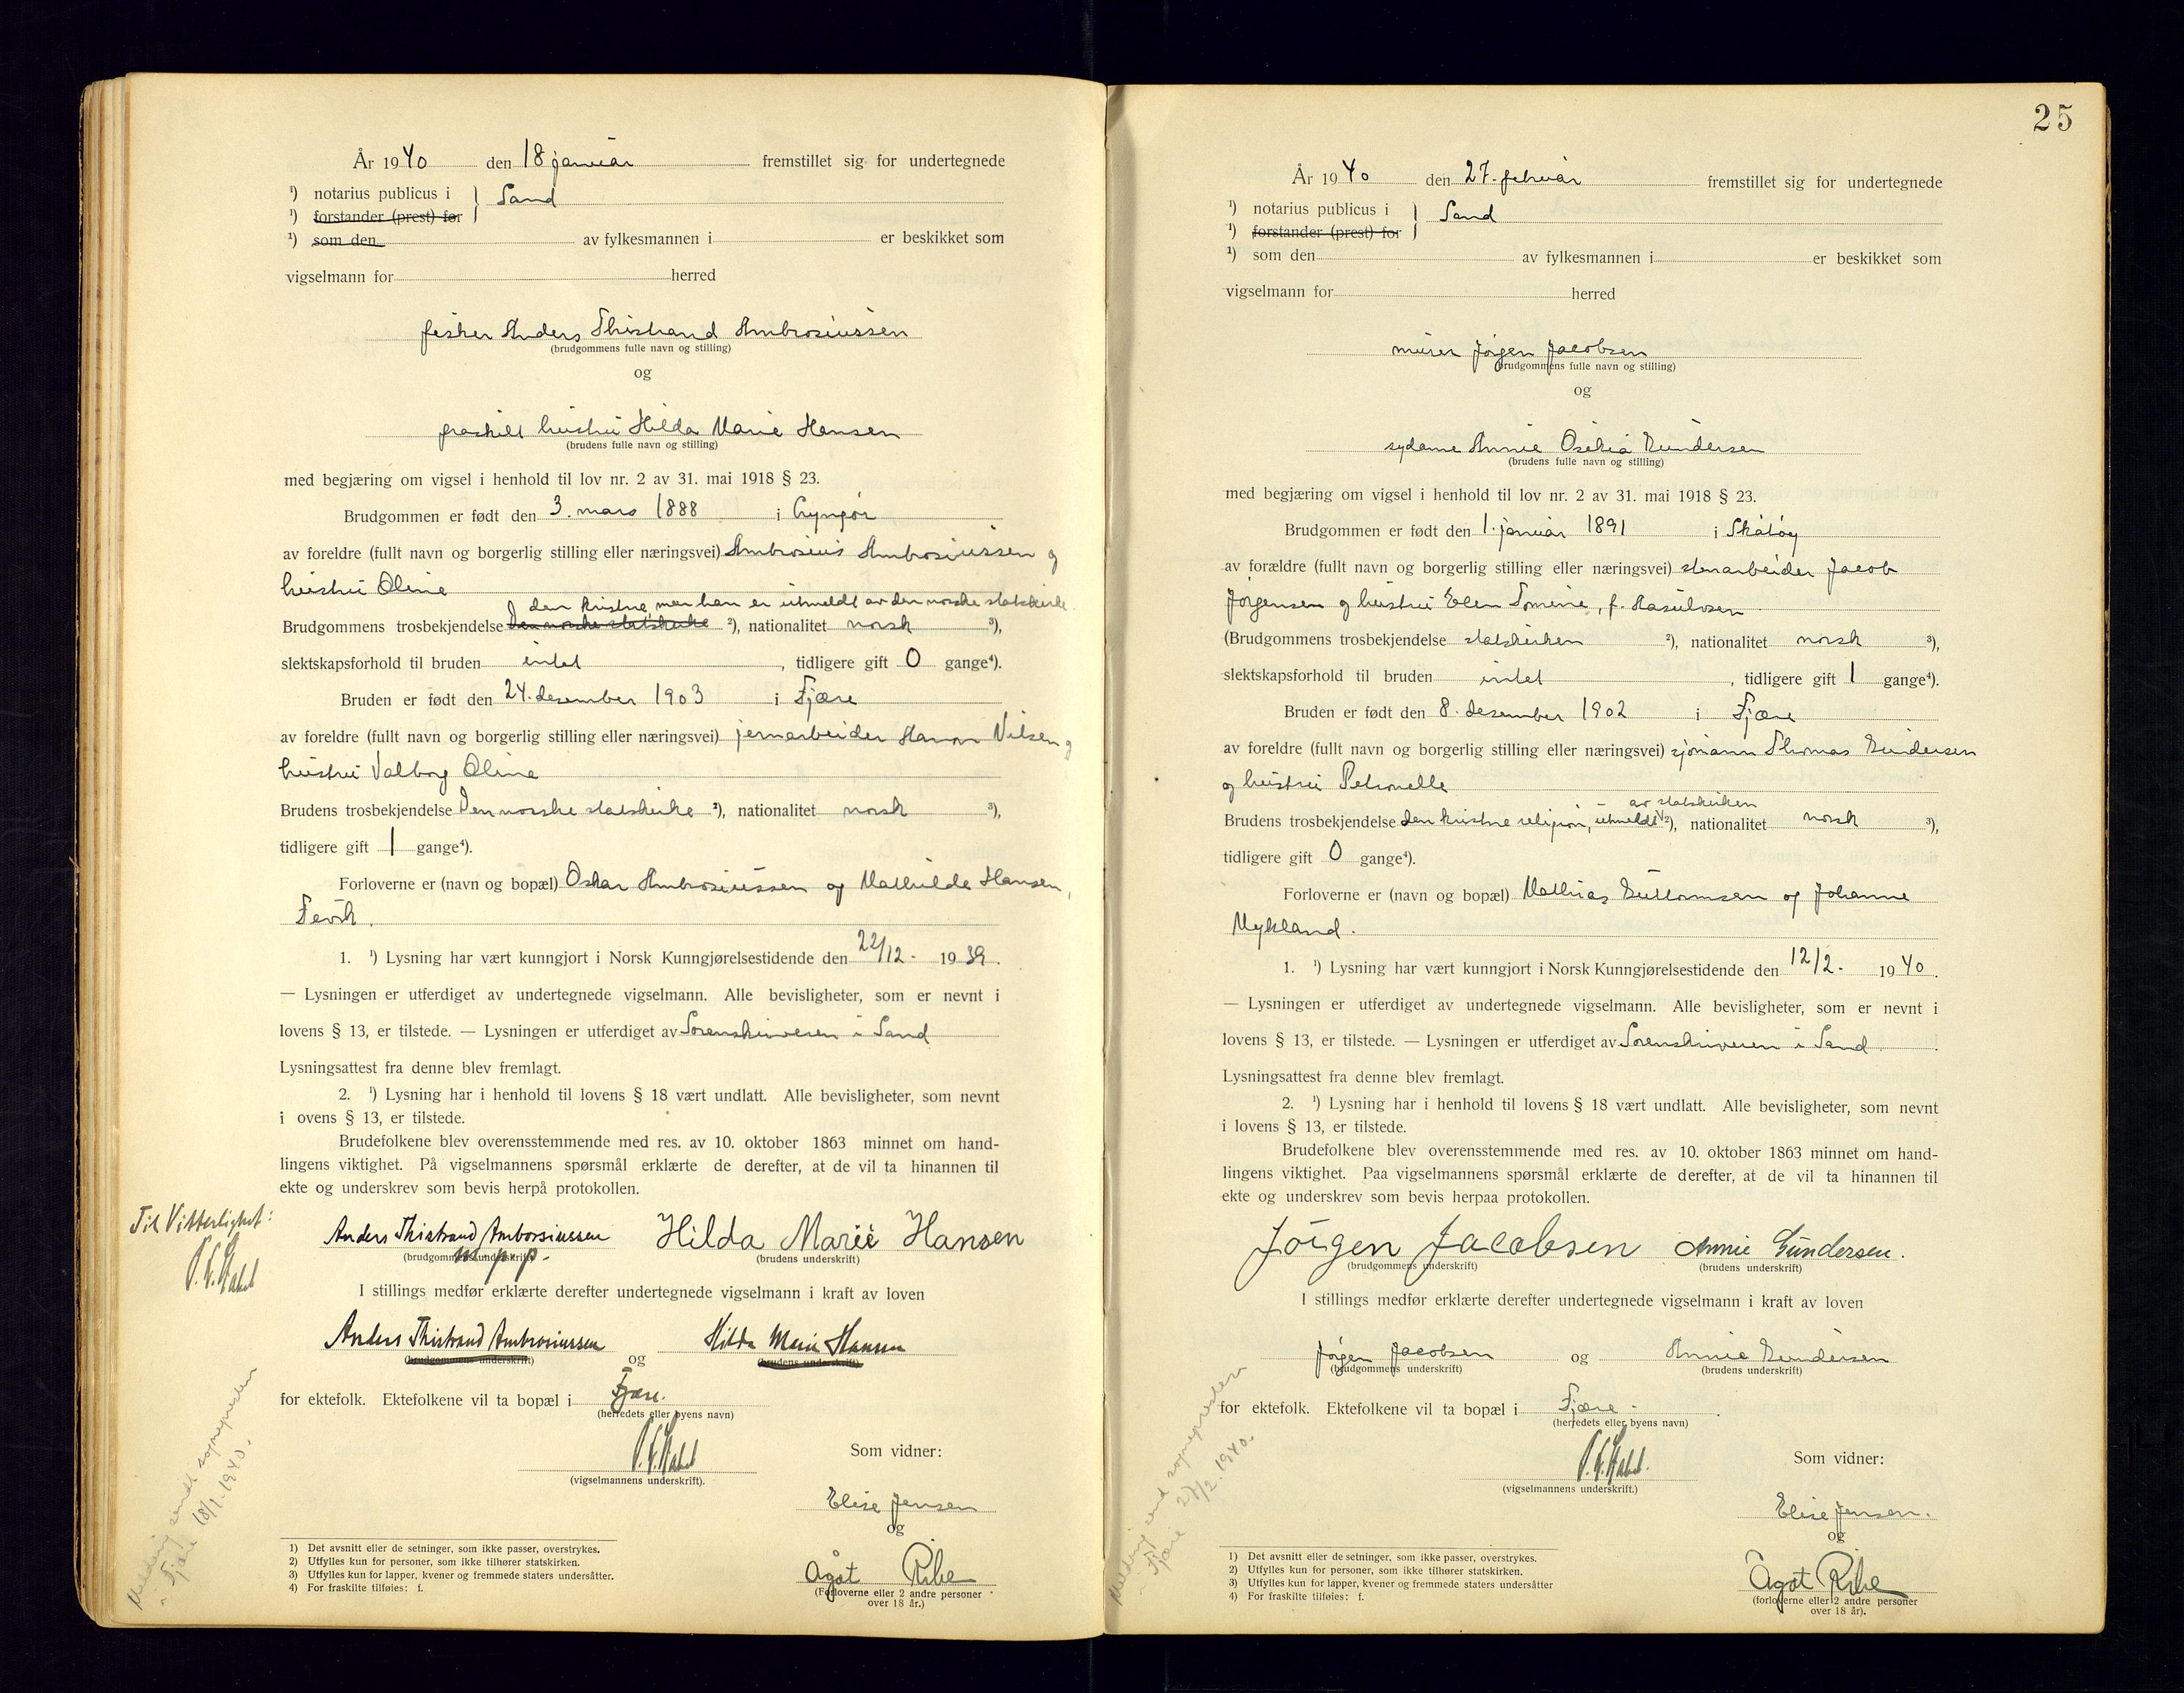 År 1940 den 18 januar fremstillet sig for undertegnede
¹) notarius publicus i } Sand
¹) forstander (prest) for
¹) som den av fylkesmannen i er beskikket som
vigselmann for herred
fisker Anders Thistrand Ambrosiussen
(brudgommens fulle navn og stilling)
og
fraskilt hustru Hilda Marie Hansen
(brudens fulle navn og stilling)
med begjæring om vigsel i henhold til lov nr. 2 av 31. mai 1918 § 23.
Brudgommen er født den 3. mars 1888 i Lyngør
av foreldre (fullt navn og borgerlig stilling eller næringsvei) Ambrosius Ambrosiussen og
hustru Oline
den kristne, men han er utmeldt av den norske statskirke
Brudgommens trosbekjendelse Den norske statskirke ²), nationalitet norsk ³),
slektskapsforhold til bruden intet, tidligere gift 0 gange⁴).
Bruden er født den 24. desember 1903 i Fjære
av foreldre (fullt navn og borgerlig stilling eller næringsvei) jernarbeider Hanon Nilsen og
hustru Valborg Oline
Brudens trosbekjendelse Den norske statskirke ²), nationalitet norsk ³),
tidligere gift 1 gange⁴).
Forloverne er (navn og bopæl) Oskar Ambrosiussen og Mathilde Hansen,
Fevik.
1. ¹) Lysning har vært kunngjort i Norsk Kunngjørelsestidende den 22/12. 1939.
— Lysningen er utferdiget av undertegnede vigselmann. Alle bevisligheter, som er nevnt i
lovens § 13, er tilstede. — Lysningen er utferdiget av Sorenskriveren i Sand
Lysningsattest fra denne blev fremlagt.
2. ¹) Lysning har i henhold til lovens § 18 vært undlatt. Alle bevisligheter, som nevnt
i ovens § 13, er tilstede.
Brudefolkene blev overensstemmende med res. av 10. oktober 1863 minnet om hand-
lingens viktighet. På vigselmannens spørsmål erklærte de derefter, at de vil ta hinannen til
ekte og underskrev som bevis herpå protokollen.
Til Vitterlighet:
Anders Thistrand Amborsiussen Hilda Marie Hansen
(brudgommens underskrift) (brudens underskrift)
m.p.p.
I stillings medfør erklærte derefter undertegnede vigselmann i kraft av loven
Anders Thistrand Ambrosiussen og Hilda Marie Hansen
(brudgommens underskrift) (brudens underskrift)
for ektefolk. Ektefolkene vil ta bopæl i Fjære.
(herredets eller byens navn)
Som vidner:
(vigselmannens underskrift).
Elise Jensen
og
Ågot Ribe
(Forloverne eller 2 andre personer
over 18 år.)
Melding sendt sognepresten
i Fjære 18/1. 1940.
1) Det avsnitt eller de setninger, som ikke passer, overstrykes.
2) Utfylles kun for personer, som ikke tilhører statskirken.
3) Utfylles kun for lapper, kvener og fremmede staters undersåtter.
4) For fraskilte tilføies: f.
25
År 1940 den 27. februar fremstillet sig for undertegnede
¹) notarius publicus i } Sand
¹) forstander (prest) for
¹) som den av fylkesmannen i er beskikket som
vigselmann for herred
murer Jørgen Jacobsen
(brudgommens fulle navn og stilling)
og
sydame Annie Osekia Gundersen
(brudens fulle navn og stilling)
med begjæring om vigsel i henhold til lov nr. 2 av 31. mai 1918 § 23.
Brudgommen er født den 1. januar 1891 i Skåtøy
av forældre (fullt navn og borgerlig stilling eller næringsvei) stenarbeider Jacob
Jørgensen og hustru Elen Tomine, f.
(Brudgommens trosbekjendelse statskirken ²), nationalitet norsk ³),
slektskapsforhold til bruden intet, tidligere gift 1 gange⁴).
Bruden er født den 8. desember 1902 i Fjære
av foreldre (fullt navn og borgerlig stilling eller næringsvei) sjømann Thomas Gundersen
og hustru Petronelle
av statskirken
Brudens trosbekjendelse den kristne religion, utmeldt ²), nationalitet norsk ³),
tidligere gift 0 gange⁴).
Forloverne er (navn og bopæl) Mathias Guttomsen og Johanne
Mykland.
1. ¹) Lysning har vært kunngjort i Norsk Kunngjørelsestidende den 12/2. 1940.
— Lysningen er utferdiget av undertegnede vigselmann. Alle bevisligheter, som er nevnt i
lovens § 13, er tilstede. — Lysningen er utferdiget av Sorenskriveren i Sand.
Lysningsattest fra denne blev fremlagt.
2. ¹) Lysning har i henhold til lovens § 18 vært undlatt. Alle bevisligheter, som nevnt
i lovens § 13, er tilstede.
Brudefolkene blev overensstemmende med res. av 10. oktober 1863 minnet om hand-
lingens viktighet. Paa vigselmannens spørsmål erklærte de derefter, at de vil ta hinannen til
ekte og underskrev som bevis herpaa protokollen.
Jørgen Jacobsen Annie Gundersen.
(brudgommens underskrift) (brudens underskrift)
I stillings medfør erklærte derefter undertegnede vigselmann i kraft av loven
Jørgen Jacobsen og Annie Gundersen
(brudgommens underskrift) (brudens underskrift)
for ektefolk. Ektefolkene vil ta bopæl i Fjære.
(herredets eller byens navn)
Som vidner:
(vigselmannens underskrift.)
Elise Jensen.
og
Ågot Ribe
(forloverne eller 2 andre personer
over 18 år).
Melding send sognepresten
i Fjære 27/2. 1940.
1) Det avsnitt eller de setninger, som ikke passer, overstrykes.
2) Utfylles kun for personer, som ikke tilhører statskirken.
3) Utfylles kun for lapper, kvener og fremmede staters undersåtter
4) For fraskilte tilføies: f.